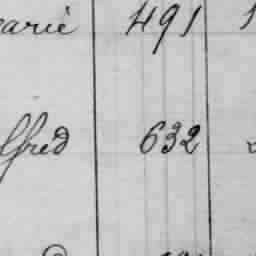 arie 491
lfred 632